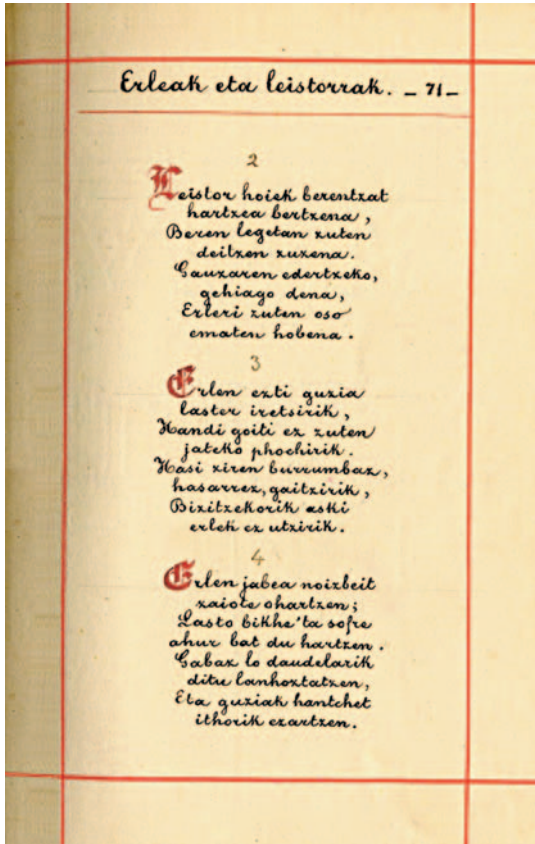 Erleak eta leistorrak. _ 71 _
2
Leistor hoiek berentzat
hartzea bertzena,
Beren legetan zuten
deitzen zuzena.
Gauzaren edertzeko,
gehiago dena,
Erleri zuten oso
ematen hobena.
3
Erlen ezti guzia
laster iretsirik,
Handi goiti ez zuten
jateko phochirik.
Hasi ziren burrumbaz,
hasarrez, gaitzirik,
Bizitzekorik aski
erlek ez utzirik.
4
Erlen jabea noizbeit
zaiote ohartzen;
Lasto bikhe'ta sofre
ahur bat du hartzen.
Gabaz lo daudelarik
ditu lanhoztatzen,
Eta guziak hantchet
ithorik ezartzen.